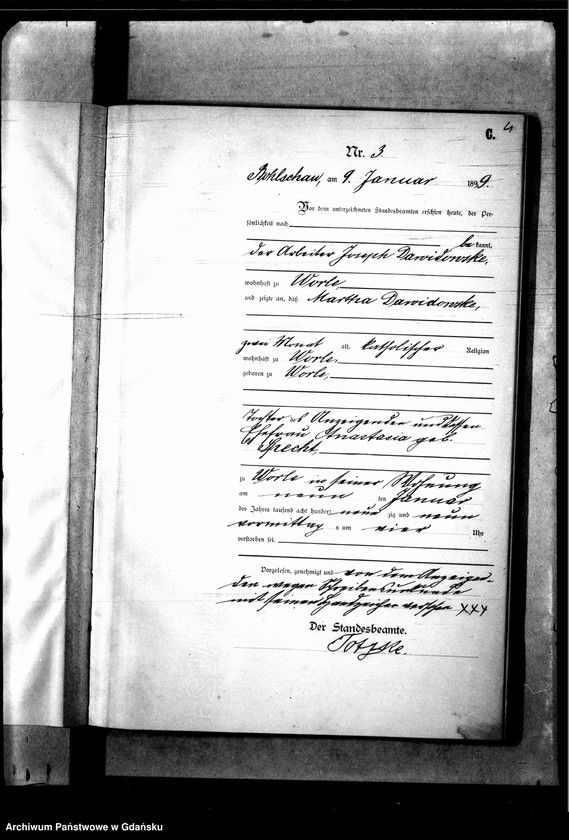 C.
4
Nr. 3.
Bohlschau, am 9. Januar 1899.
Vor dem unterzeichneten Standesbeamten erschien heute, der Per-
sönlichkeit nach
be kannt,
der Arbeiter Joseph Dawidowske,
wohnhaft zu Worle,
und zeigte an, daß Martha Dawidowske,
zwei Monat alt, katholischer Religion
wohnhaft zu Worle,
geboren zu Worle,
Tochter des Anzeigenden und dessen
Ehefrau Anastasia geb.
Specht,
zu Worle in seiner Wohnung
am neun ten Januar
des Jahres tausend acht hundert neun zig und neun
vormittag s um vier Uhr
verstorben sei.
Vorgelesen, genehmigt und von dem Anzeigen-
den wegen Schreibensunkunde
mit seinem Handzeichen versehen XXX
Der Standesbeamte.
Archiwum Państwowe w Gdańsku